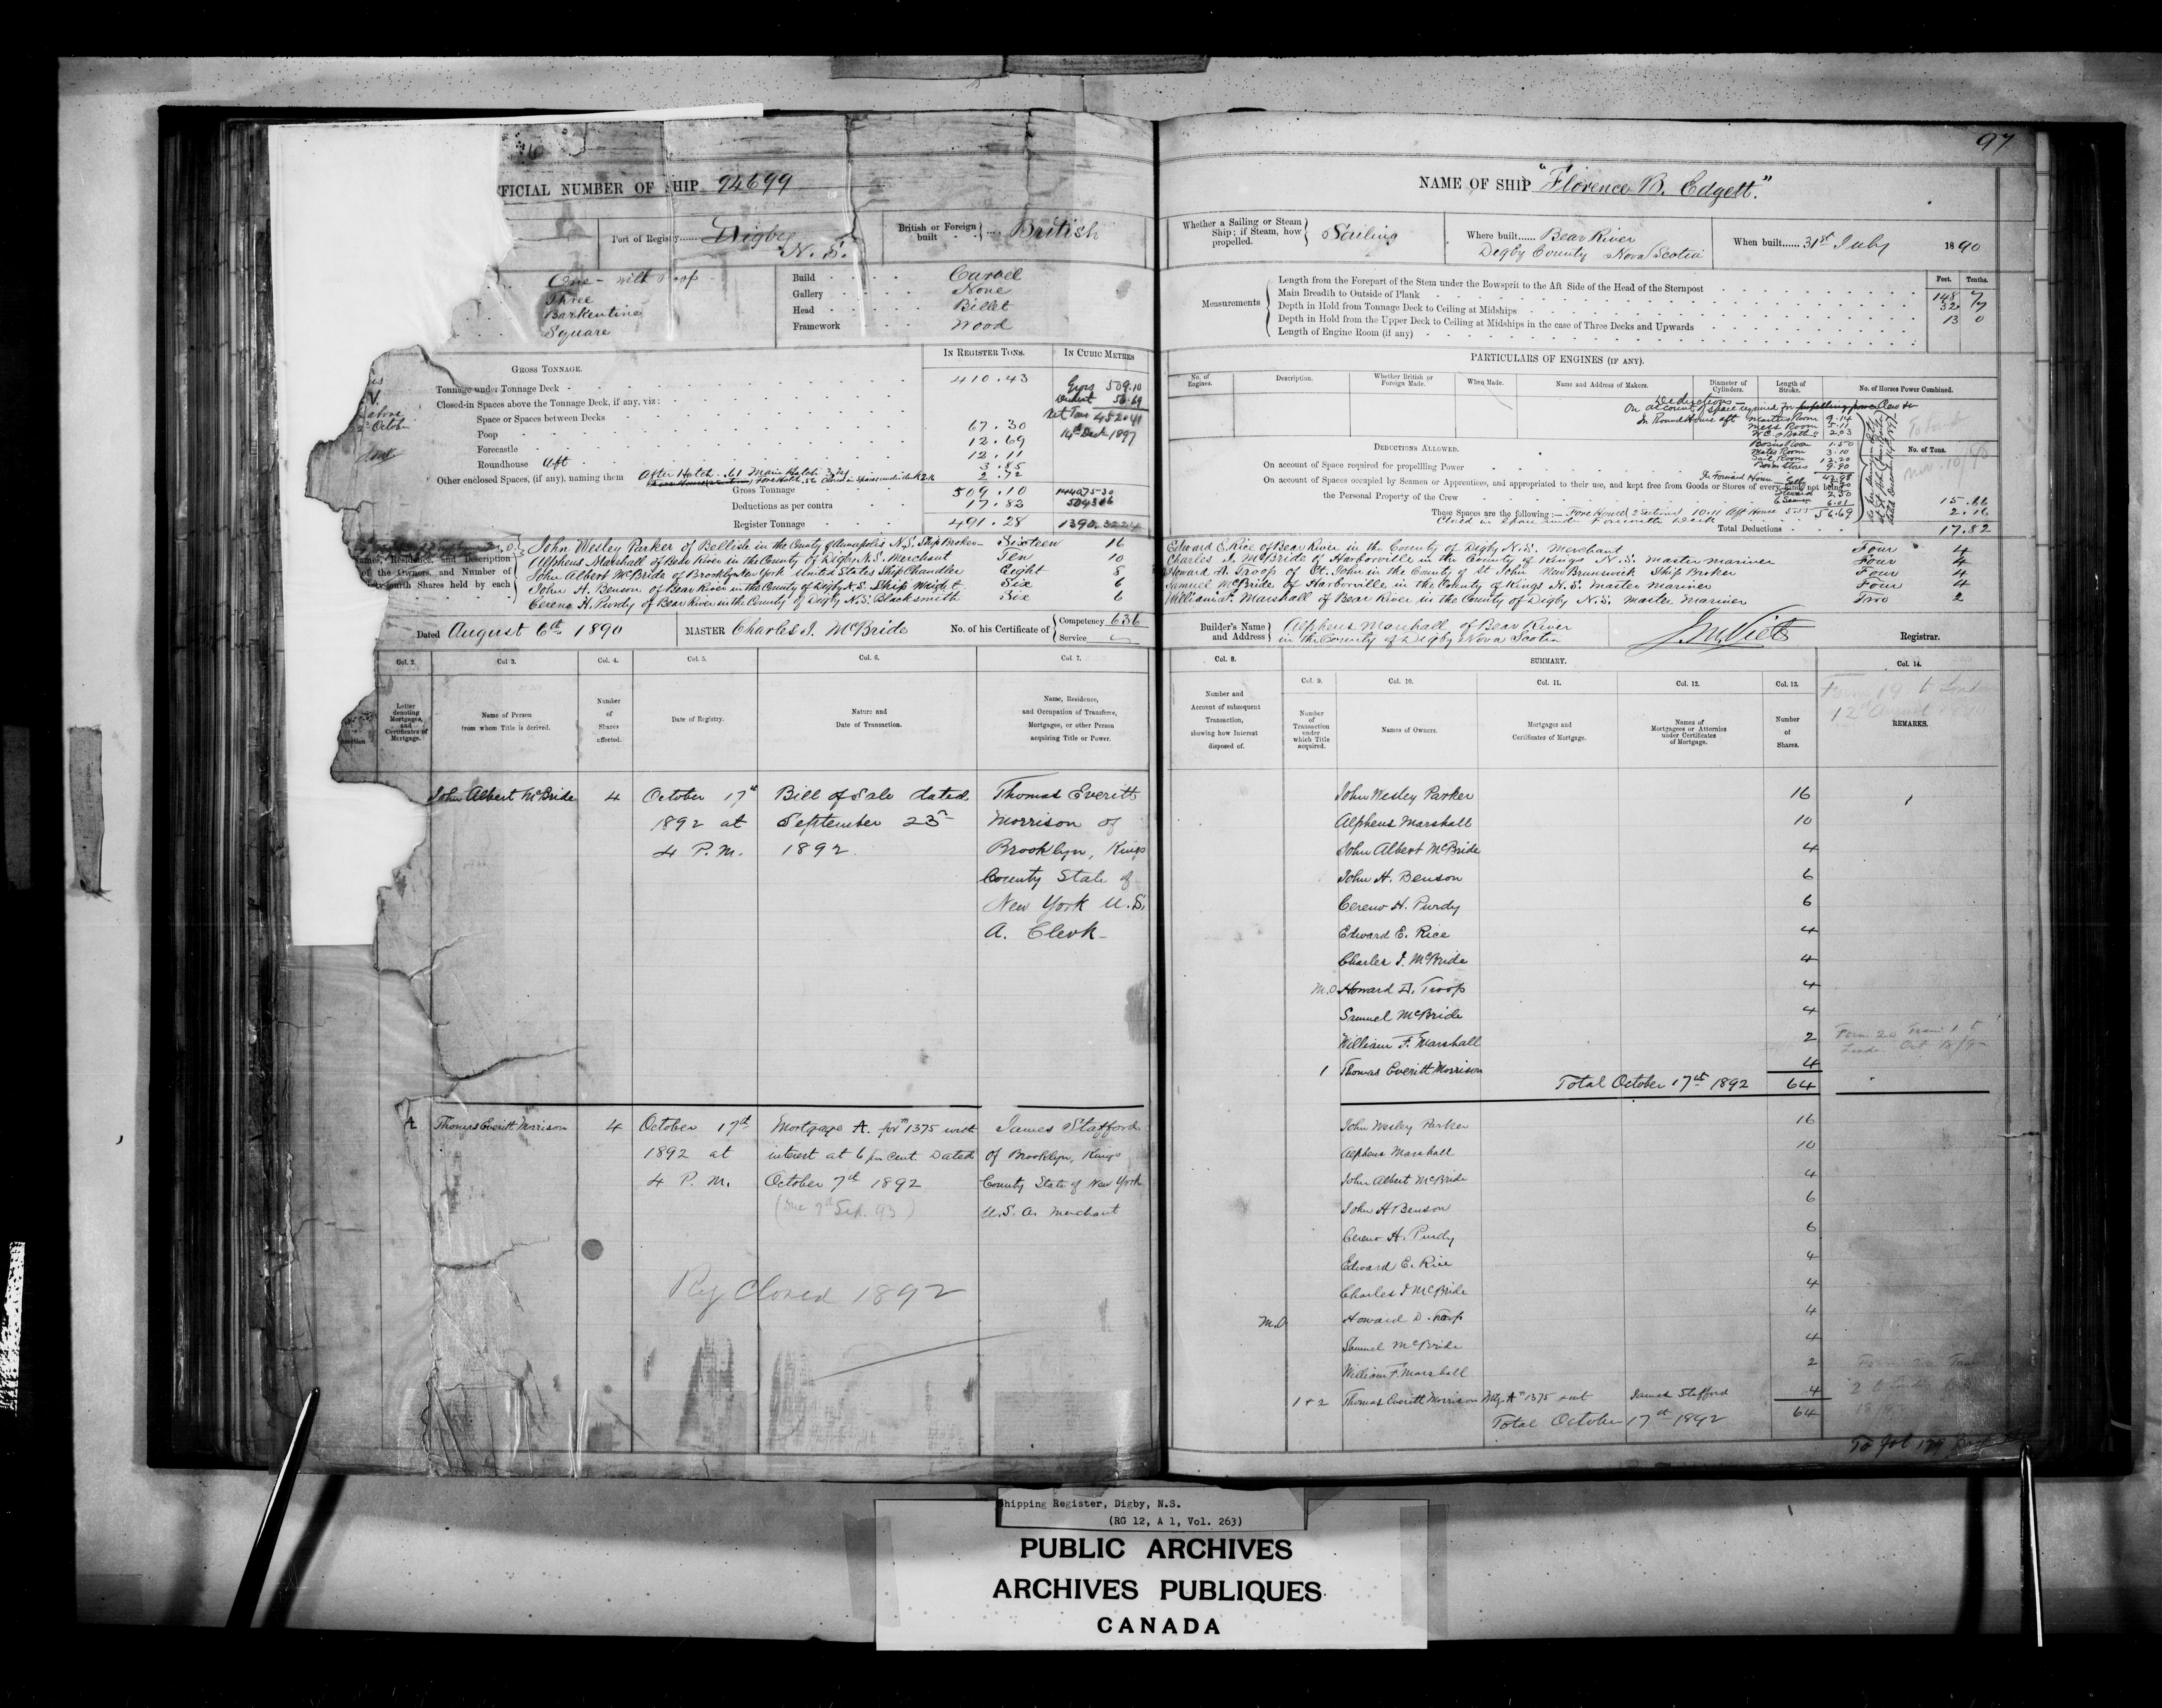 97
FFICIAL NUMBER OF SHIP 94699
Port of Registry...... Digby N. S.
British or Foreign built .... British
One - with Poop
Three
Barkentine
Square
Build Carvel
Gallery None
Head Billet
Framework Wood
GROSS TONNAGE.
IN REGISTER TONS.
IN CUBIC METRES
Tonnage under Tonnage Deck 410.43
Closed-in Spaces above the Tonnage Deck, if any, viz:
Space or Spaces between Decks
Poop 67.30
Forecastle 12.69
Roundhouse aft 12.11
3.85
Other enclosed Spaces, (if any), naming them After Hatch .61 Main Hatch 2.72
Gross Tonnage 509.10
Deductions as per contra 17.82
Register Tonnage 491.28 1390.3224
Gross 509.10
56.69
Net Tons 452.41
14th Dec 1897
Names, Residence, and Description of the Owners, and Number of fourth Shares held by each
John Wesley Parker of Bellisle in the County of Annapolis N.S. Ship Broker Sixteen 16
Alpheus Marshall of Bear River in the County of Digby N.S. Merchant Ten 10
John Albert McBride of Brooklyn New York United States Ship Chandler Eight 8
John H. Benson of Bear River in the County of Digby N.S. Ship Wright Six 6
Cereno H. Purdy of Bear River in the County of Digby N.S. Blacksmith Six 6
Dated August 6th 1890
MASTER Charles I. McBride
No. of his Certificate of Competency 636
Service
Col. 2. Col 3. Col. 4. Col. 5. Col. 6. Col. 7.
Letter denoting Mortgages, and Certificates of Mortgage.
Name of Person from whom Title is derived.
Number of Shares affected.
Date of Registry.
Nature and Date of Transaction.
Name, Residence, and Occupation of Transferee, Mortgagee, or other Person acquiring Title or Power.
John Albert McBride 4 October 17th Bill of Sale dated Thomas Everitt
1892 at September 23 Morrison of
4 P.M. 1892 Brooklyn, Kings
County State of
New York U.S.
A. Clerk
A Thomas Everitt Morrison 4 October 17th Mortgage A. for 1375 with James Stafford
1892 at interest at 6 per cent. Dated of Brooklyn, Kings
4 P. M. October 7th 1892 County State of New York
(Due 7th Sep. 93) U.S.A. Merchant
Reg Closed 1892
NAME OF SHIP "Florence B. Edgett."
Whether a Sailing or Steam Ship; if Steam, how propelled. Sailing
Where built...... Bear River
Digby County Nova Scotia
When built...... 31st July 1890
Feet. Tenths.
Measurements
Length from the Forepart of the Stem under the Bowsprit to the Aft Side of the Head of the Sternpost 148 7
Main Breadth to Outside of Plank 32 7
Depth in Hold from Tonnage Deck to Ceiling at Midships 13 0
Depth in Hold from the Upper Deck to Ceiling at Midships in the case of Three Decks and Upwards
Length of Engine Room (if any)
PARTICULARS OF ENGINES (IF ANY).
No. of Engines.
Description.
Whether British or Foreign Made.
When Made.
Name and Address of Makers.
Diameter of Cylinders.
Length of Stroke.
No. of Horses Power Combined.
Deductions
On account of space required for propelling power Crew
In Round House aft Masters Room 9.14
Mess Room 5.11
2.03
Bosns Room 1.50
Mates Room 3.10
Sail Room 12.20
Bosns Stores 9.90
In Forward House
Steward 2.50
6 Seamen
56.69
DEDUCTIONS ALLOWED.
No. of Tons.
On account of Space required for propelling Power
On account of Spaces occupied by Seamen or Apprentices, and appropriated to their use, and kept free from Goods or Stores of every kind, not being
the Personal Property of the Crew 15.66
These Spaces are the following:— Fore House 2 Sections 10.11 Aft House 5.55 2.16
Total Deductions 17.82
Edward E. Rice of Bear River in the County of Digby N.S. Merchant Four 4
Charles I. McBride of Harborville in the County of Kings N.S. Master Mariner Four 4
Howard D. Troop of St. John in the County of St John New Brunswick Ship Broker Four 4
Samuel McBride of Harborville in the County of Kings N.S. Master Mariner Four 4
William F. Marshall of Bear River in the County of Digby N.S. Master Mariner Two 2
Builder's Name and Address Alpheus Marshall of Bear River
in the County of Digby Nova Scotia
J.M. Viets
Registrar.
Col. 8.
SUMMARY.
Col. 9. Col. 10. Col. 11. Col. 12. Col. 13. Col. 14.
Number and Account of subsequent Transaction, showing how Interest disposed of.
Number of Transaction under which Title acquired.
Names of Owners.
Mortgages and Certificates of Mortgage.
Names of Mortgagees or Attornies under Certificates of Mortgage.
Number of Shares.
REMARKS.
Form 19 to London
12th August
John Wesley Parker 16
Alpheus Marshall 10
John Albert McBride 4
John H. Benson 6
Cereno H. Purdy 6
Edward E. Rice 4
Charles I. McBride 4
M.O Howard D. Troop 4
Samuel McBride 4
William F. Marshall 2
1 Thomas Everitt Morrison 4
Total October 17th 1892 64
John Wesley Parker 16
Alpheus Marshall 10
John Albert McBride 4
John H Benson 6
Cereno H. Purdy 6
Edward E. Rice 4
Charles I McBride 4
M.O Howard D. Troop 4
Samuel McBride 4
William F. Marshall 2
1 + 2 Thomas Everitt Morrison Mtg. A 1375 + int James Stafford 4
Total October 17th 1892 64
To fol 177
Shipping Register, Digby, N.S.
(RG 12, A 1, Vol. 263)
PUBLIC ARCHIVES
ARCHIVES PUBLIQUES
CANADA